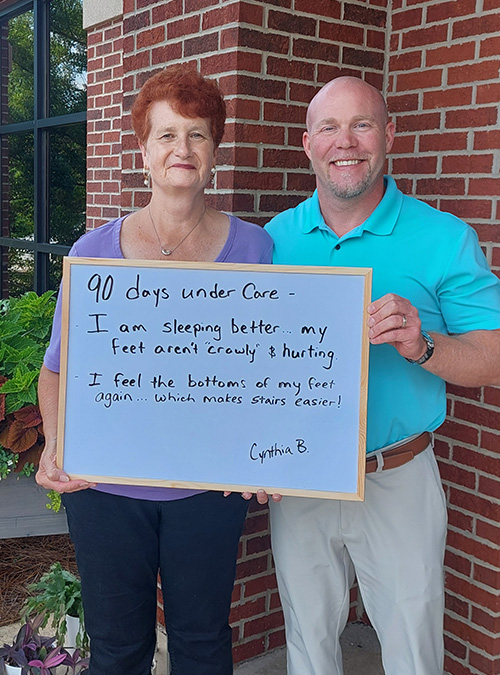 90 days under Care -
- I am sleeping better... my
feet aren't "crawly" & hurting.
- I feel the bottoms of my feet
again... which makes stairs easier!
Cynthia B.